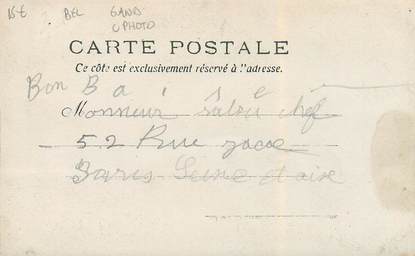 15€ BEL GAND
C PHOTO
CARTE POSTALE
Ce côté est exclusivement réservé à l'adresse.
Bon Baisé
Monneur chef
52 Rue
Paris Seine et